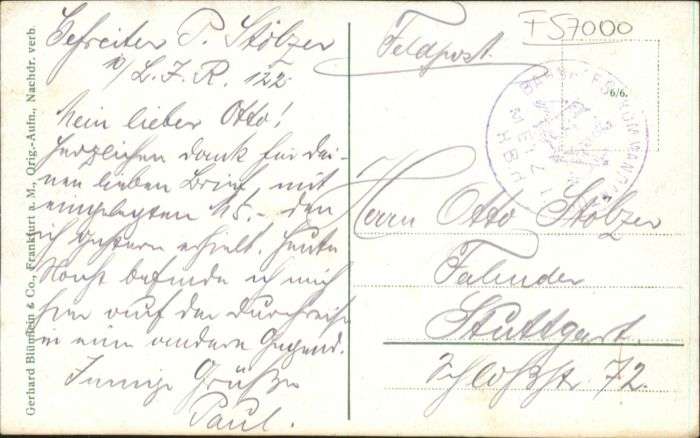 Gefreiter P. Stölzer
L. I. R. 122
FS7000
Feldpost.
6/6.
Mein lieber Otto!
Herzlichen Dank für dei-
nen lieben Brief mit
eingelegten 15.- den
ich gestern erhielt. Heute
Nacht befinde ich mich
hier auf der Durchreise
in eine andere Gegend.
Innige Grüße
Paul.
Herrn Otto Stölzer
Stuttgart.
Schloßstr. 72.
Gerhard Blümlein & Co., Frankfurt a. M., Orig.-Aufn., Nachdr. verb.